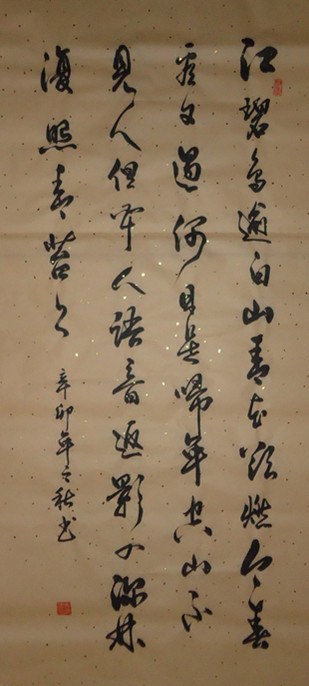 江碧鳥逾白山青花欲燃今春
看又過何日是歸年空山不
見人但聞人語音返影入深林
復照青苔上
辛卯年之秋书